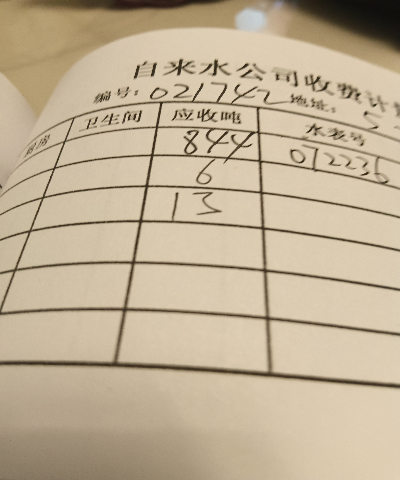 自来水公司收费计
编号: 021742 地址: 5
厨房 卫生间 应收吨 水表号
844 012236
6
13